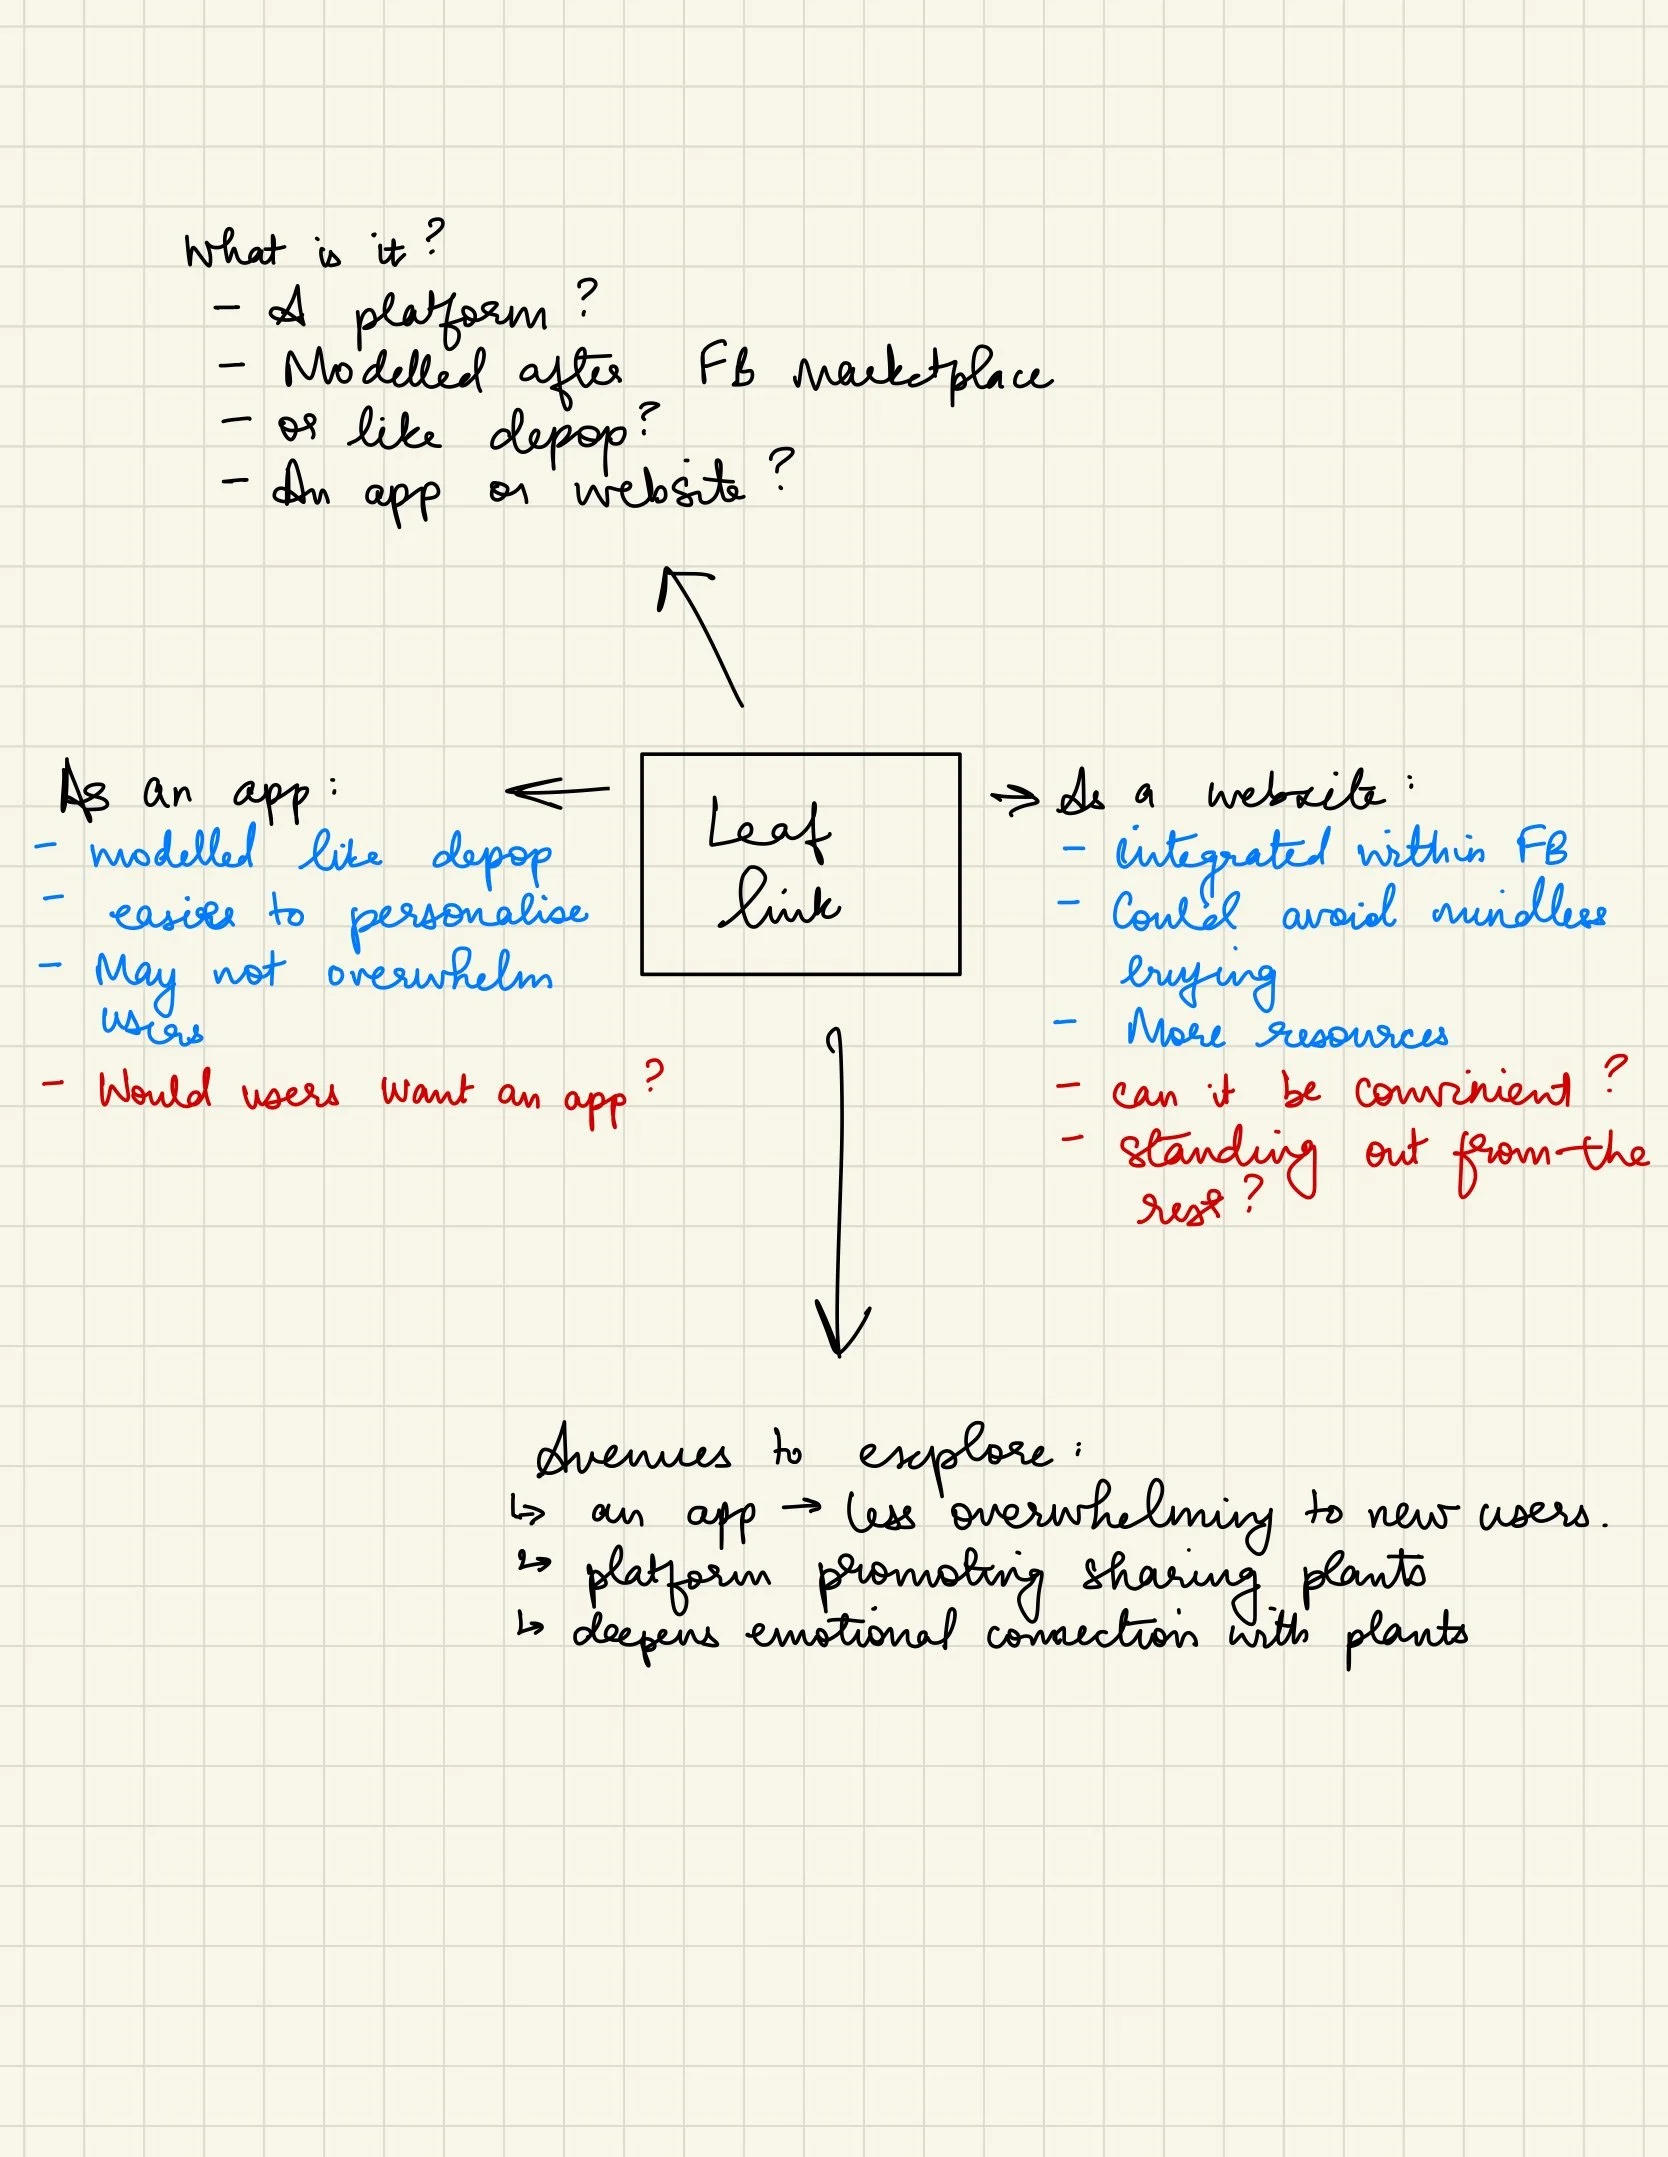 What is it?
- A platform?
- Modelled after FB Marketplace
- or like depop?
- An app or website?
As an app:
- modelled like depop
- easier to personalise
- May not overwhelm
users
- Would users want an app?
Leaf
link
As a website:
- integrated within FB
- Could avoid mindless
buying
- More resources
- can it be convinient?
- standing out from the
rest?
Avenues to explore:
↳ an app → less overwhelming to new users.
↳ platform promoting sharing plants
↳ deepens emotional connection with plants